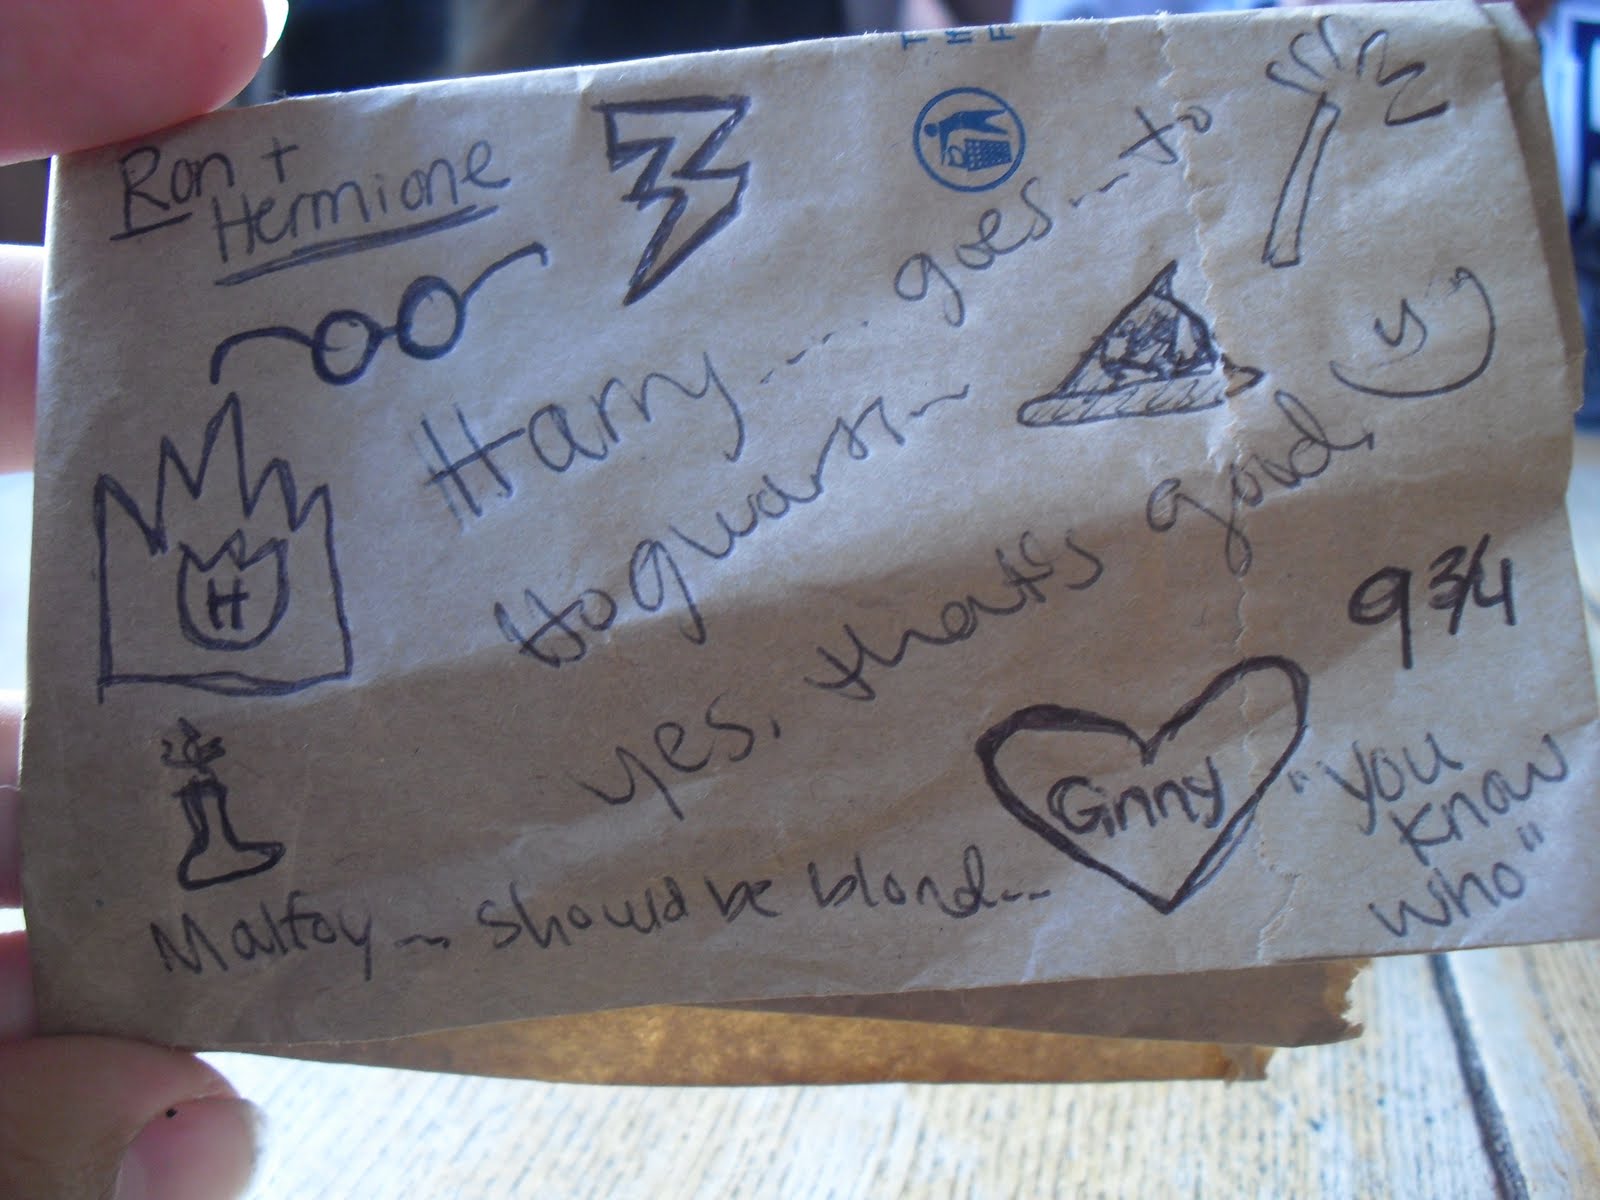 Ron +
Hermione
Harry... goes... to
Hogwarts...
yes, that's good.
H
9 3/4
Ginny
"you
know
who"
Malfoy... should be blond...